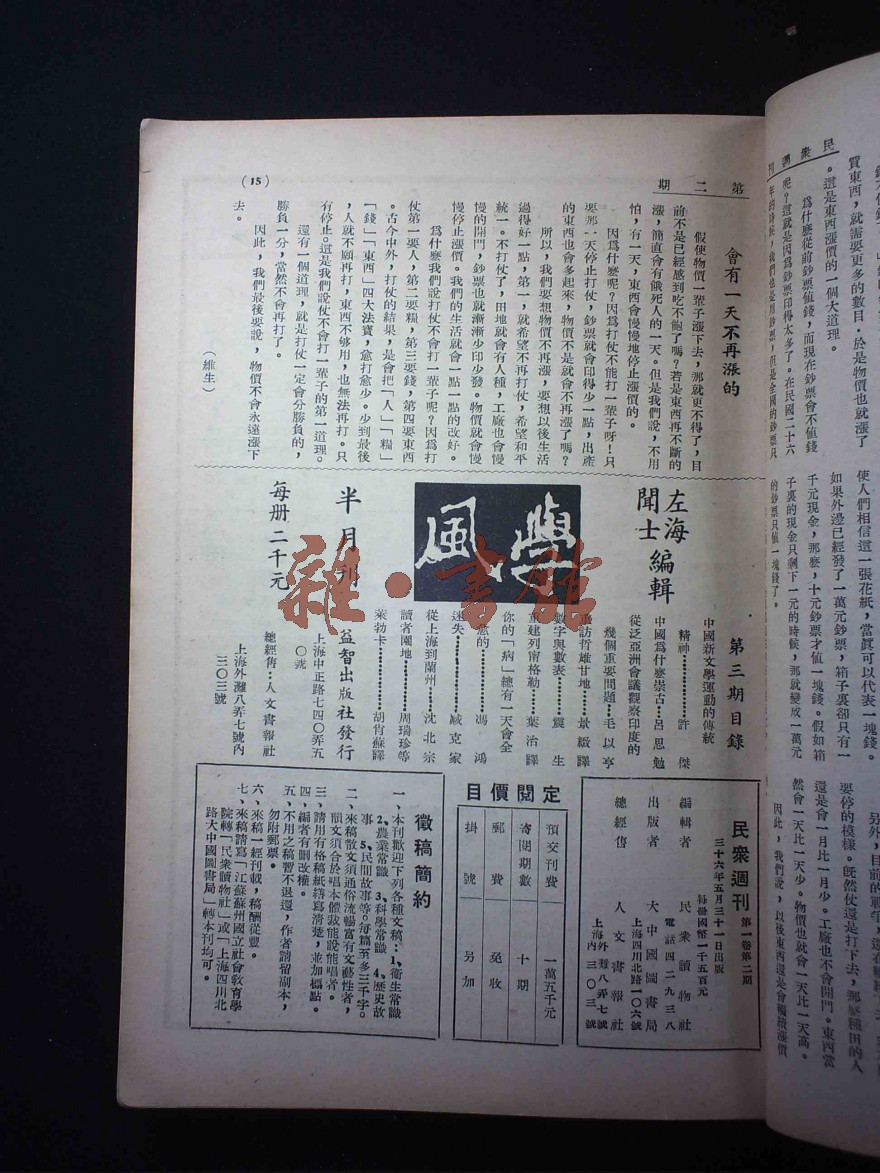 民衆週刊
第二期
(15)
會有一天不再漲的
假使物價一輩子漲下去，那就更不得了，目
前不是已經感到吃不飽了嗎？若是東西再不斷的
漲，簡直會有餓死人的一天。但是我們說，不用
怕，有一天，東西會慢慢地停止漲價的。
因爲什麽呢？因爲打仗不能打一輩子呀！只
要那一天停止打仗，鈔票就會印得少一點，出產
的東西也會多起來，物價不是就會不再漲了嗎？
所以，我們要想物價不再漲，要想以後生活
過得好一點，第一，就希望不再打仗，希望和平
統一。不打仗了，田地就會有人種，工廠也會慢
慢的開門，鈔票也就漸漸少印少發。物價就會慢
慢停止漲價。我們的生活就會一點一點的改好。
爲什麽我們說打仗不會打一輩子呢？因爲打
仗第一要人，第二要糧，第三要錢，第四要東西
。古今中外，打仗的結果，是會把「人」「糧」
「錢」「東西」四大法寶，愈打愈少。少到最後
，人就不願再打，東西不够用，也無法再打。只
有停止。這是我們說仗不會打一輩子的第一道理。
還有一個道理，就是打仗一定會分勝負的，
勝負一分，當然不會再打了。
因此，我們最後要說，物價不會永遠漲下
去。
（維生）
左海
聞士 編輯
學風
半月刊
每册二千元
第三期目錄
中國新文學運動的傳統
精神…………許 傑
中國爲什麽崇古…呂思勉
從泛亞洲會議觀察印度的
幾個重要問題…毛以亨
重訪哲雄甘地…景緞譯
數字與數表………震 生
重建列南格勒……葉治譯
你的「病」總有一天會全
愈的…………馮 鴻
迷失…………臧克家
從上海到蘭州……沈北宗
讀者園地………周瑞珍等
萊勃卡…………胡肯蘇譯
益智出版社發行
上海中正路七四〇弄五
〇號
總經售：人文書報社
上海外灘八弄七號內
三〇三號
民衆週刊
第一卷第二期
三十六年五月三十一日出版
每册國幣一千五百元
編輯者 民衆讀物社
電話四二九三八
出版者 大中國圖書局
上海四川北路一〇六號
總經售 人文書報社
上海外灘八弄七號
內三〇三號
定閱價目
預交刊費 一萬五千元
寄閱期數 十期
郵費 免收
掛號 另加
徵稿簡約
一、本刊歡迎下列各種文稿：1、衞生常識
2、農業常識 3、科學常識 4、歷史故
事 5、民間故事等。每篇至多三千字。
二、來稿散文須通俗流暢富有文藝性者，
韻文須合於唱本體裁能說能唱者。
三、請用有格稿紙繕寫清楚，並加標點。
四、編者有刪改權。
五、不用之稿暫不退還，作者請留副本，
勿附郵票。
六、來稿一經刊載，稿酬從豐。
七、來稿請寫「江蘇蘇州國立社會教育學
院轉「民衆讀物社」或「上海四川北
路大中國圖書局」轉本刊均可。
買東西，就需要更多的數目。於是物價也就漲了
。這是東西漲價的一個大道理。
爲什麽從前鈔票値錢，而現在鈔票會不値錢
呢？這就是因爲鈔票印得太多了。在民國二十六
年的時候，我們也是用鈔票，但是全國的鈔票只
使人們相信這一張花紙，當眞可以代表一塊錢。
如果外邊已經發了一萬元鈔票，箱子裏却只有一
千元現金，那麽，十元鈔票才値一塊錢。假如箱
子裏的現金只剩下一元的時候，那就變成一萬元
的鈔票只値一塊錢了。
要停的模樣。旣然仗還是打下去，那麽種田的人
還是會一月比一月少。工廠也不會開門。東西當
然會一天比一天少。物價也就會一天比一天高。
因此，我們說，以後東西還是會繼續漲價
雜·書館